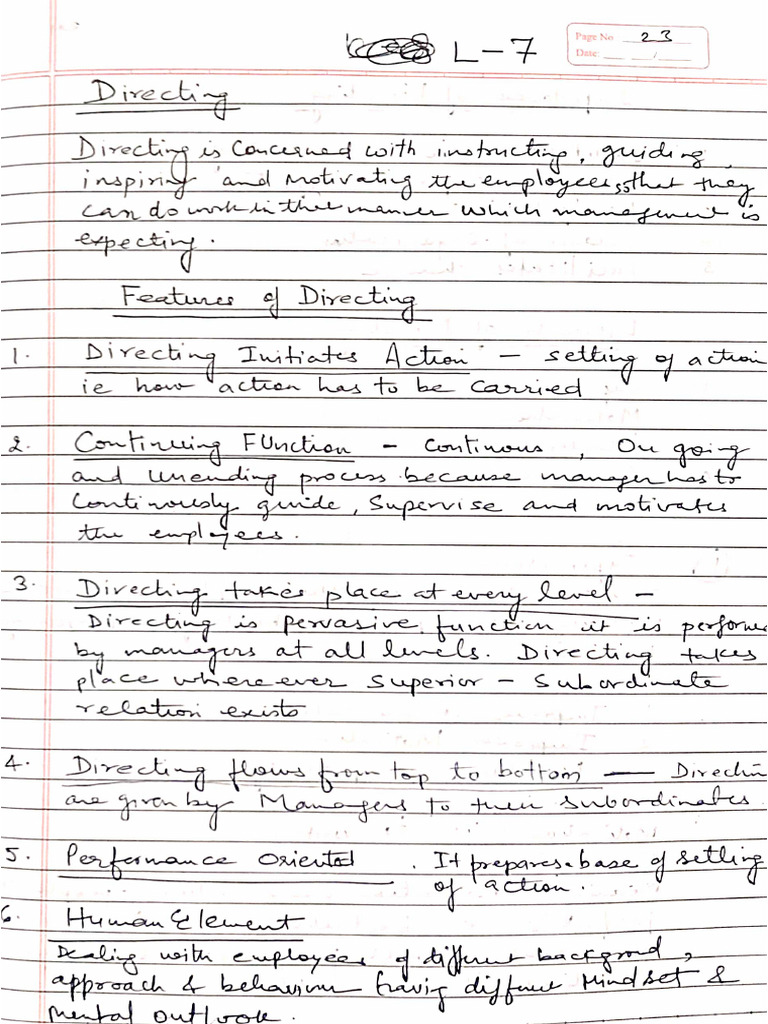 L-7
Page No 23
Date:
Directing
Directing is Concerned with instructing, guiding,
inspiring and motivating the employees so that they
can do work in the manner which management is
expecting.
Features of Directing
1. Directing Initiates Action - setting of action
ie how action has to be carried
2. Continuing Function - continous, On going
and unending process because manager has to
Continously guide, Supervise and motivates
the employees.
3. Directing takes place at every level -
Directing is pervasive function it is performe
by managers at all levels. Directing takes
place where ever Superior - Subordinate
relation exists
4. Directing flows from top to bottom - Directin
are given by Managers to their subordinates.
5. Performance Oriented . It prepares base of setting
of action.
6. Human Element
Dealing with employees of different backgrond,
approach & behaviour having different Mindset &
Mental Outlook.